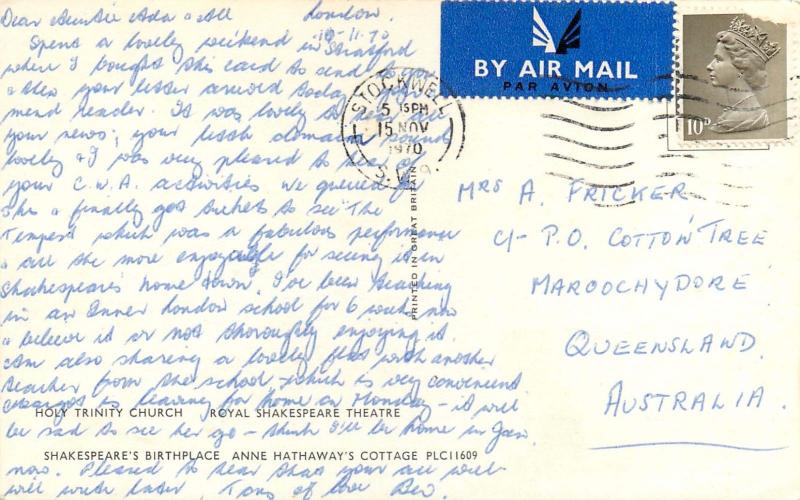 Dear Auntie Ada & All London.
10-11-70
Spent a lovely weekend in Stratford
where I bought this card to send to you
& then your letter arrived today
mend reader. It was lovely to hear all
your news; your little domain sounds
lovely & I was very pleased to hear of
your C.W.A. activities. We queued for
& finally got tickets to see The
Tempest which was a fabulous performance
& all the more enjoyable for seeing it in
Shakespeare's home town. I've been teaching
in an Inner London school for 6 weeks now
& believe it or not thoroughly enjoying it.
Am also sharing a lovely flat with another
teacher from the school, which is very convenient
is leaving for home on Monday - it will
be sad to see her go - think I'll be home in Jan
now. Pleased to hear that your are well
will write later, Tons of love Bev.
HOLY TRINITY CHURCH ROYAL SHAKESPEARE THEATRE
SHAKESPEARE'S BIRTHPLACE ANNE HATHAWAY'S COTTAGE PLC11609
PRINTED IN GREAT BRITAIN
BY AIR MAIL
PAR AVION
10P
STOCKWELL
5 15PM
15 NOV
1970
S.W.9.
MRS A. FRICKER
C/- P.O. COTTON TREE
MAROOCHYDORE
QUEENSLAND.
AUSTRALIA.